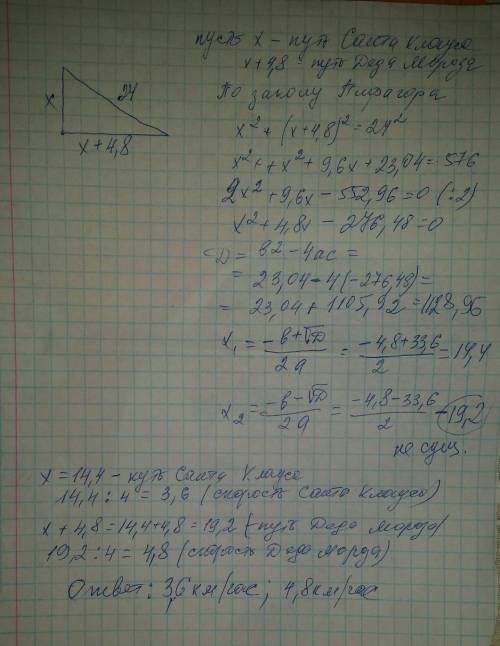 пусть x – путь Санта Клауса
x+4,8 – путь Деда Мороза
По закону Пифагора
x
24
x+4,8
x² + (x+4,8)² = 24²
x² + x² + 9,6x + 23,04 = 576
2x² + 9,6x – 552,96 = 0 (:2)
x² + 4,8x – 276,48 = 0
D = b2 – 4ac =
= 23,04 – 4(–276,48) =
= 23,04 + 1105,92 = 1128,96
x₁ = (–b+√D)/2a = (–4,8+33,6)/2 = 14,4
x₂ = (–b–√D)/2a = (–4,8–33,6)/2 –19,2
не сущ.
x = 14,4 – путь Санта Клауса
14,4 : 4 = 3,6 (скорость Санта Клауса)
x + 4,8 = 14,4 + 4,8 = 19,2 (– путь Деда Мороза)
19,2 : 4 = 4,8 (скорость Деда Мороза)
Ответ: 3,6 км/час; 4,8 км/час